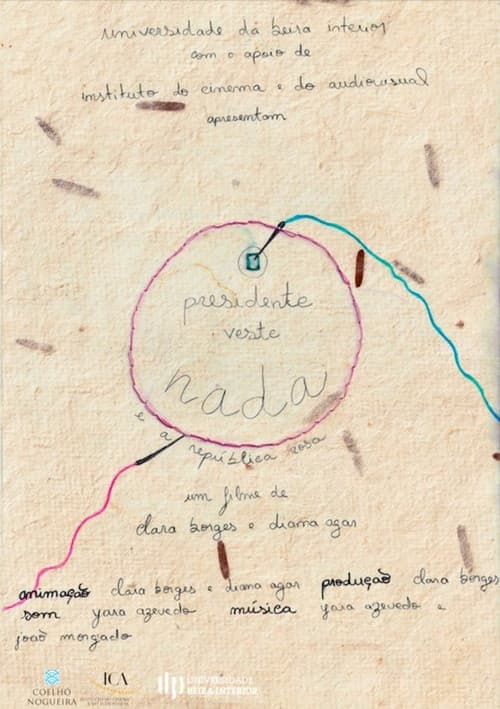 universidade da beira interior
com o apoio de
instituto do cinema e do audiovisual
apresentam
presidente
veste
nada
e a república rosa
um filme de
clara borges e diana agar
animação clara borges e diana agar produção clara borges
som yara azevedo música yara azevedo e
joão morgado
COELHO NOGUEIRA
ICA
UNIVERSIDADE
BEIRA INTERIOR